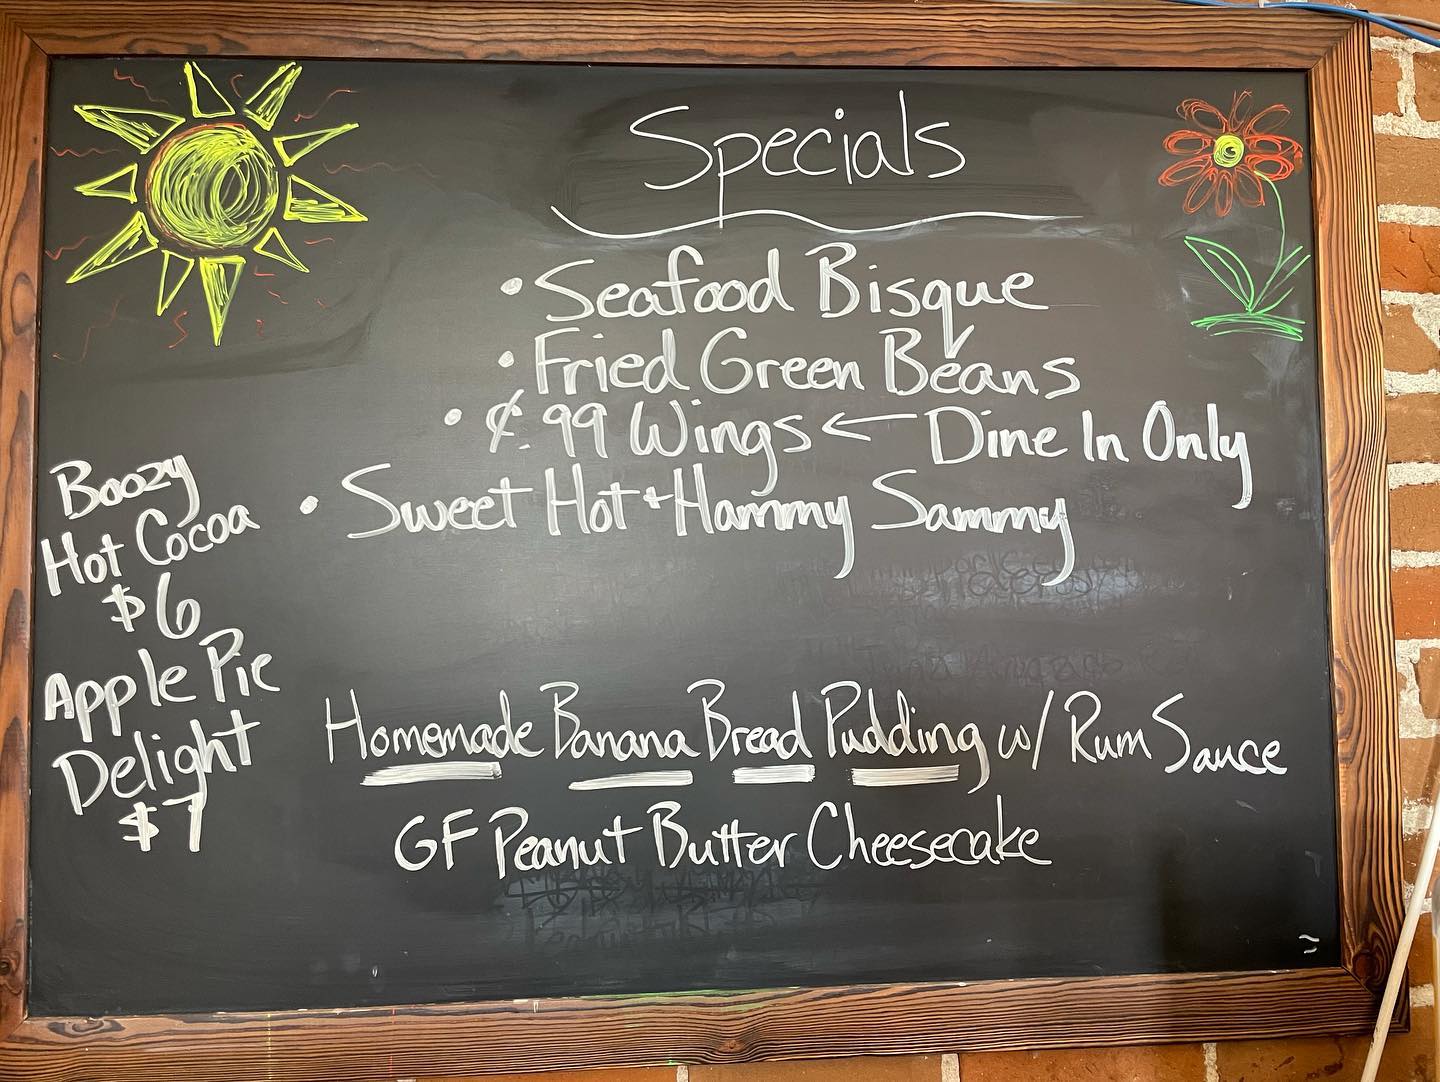 Specials
• Seafood Bisque
• Fried Green Beans
• ¢.99 Wings ← Dine In Only
• Sweet Hot + Hammy Sammy
Boozy
Hot Cocoa
$6
Apple Pie
Delight
$7
Homemade Banana Bread Pudding w/ Rum Sauce
GF Peanut Butter Cheesecake